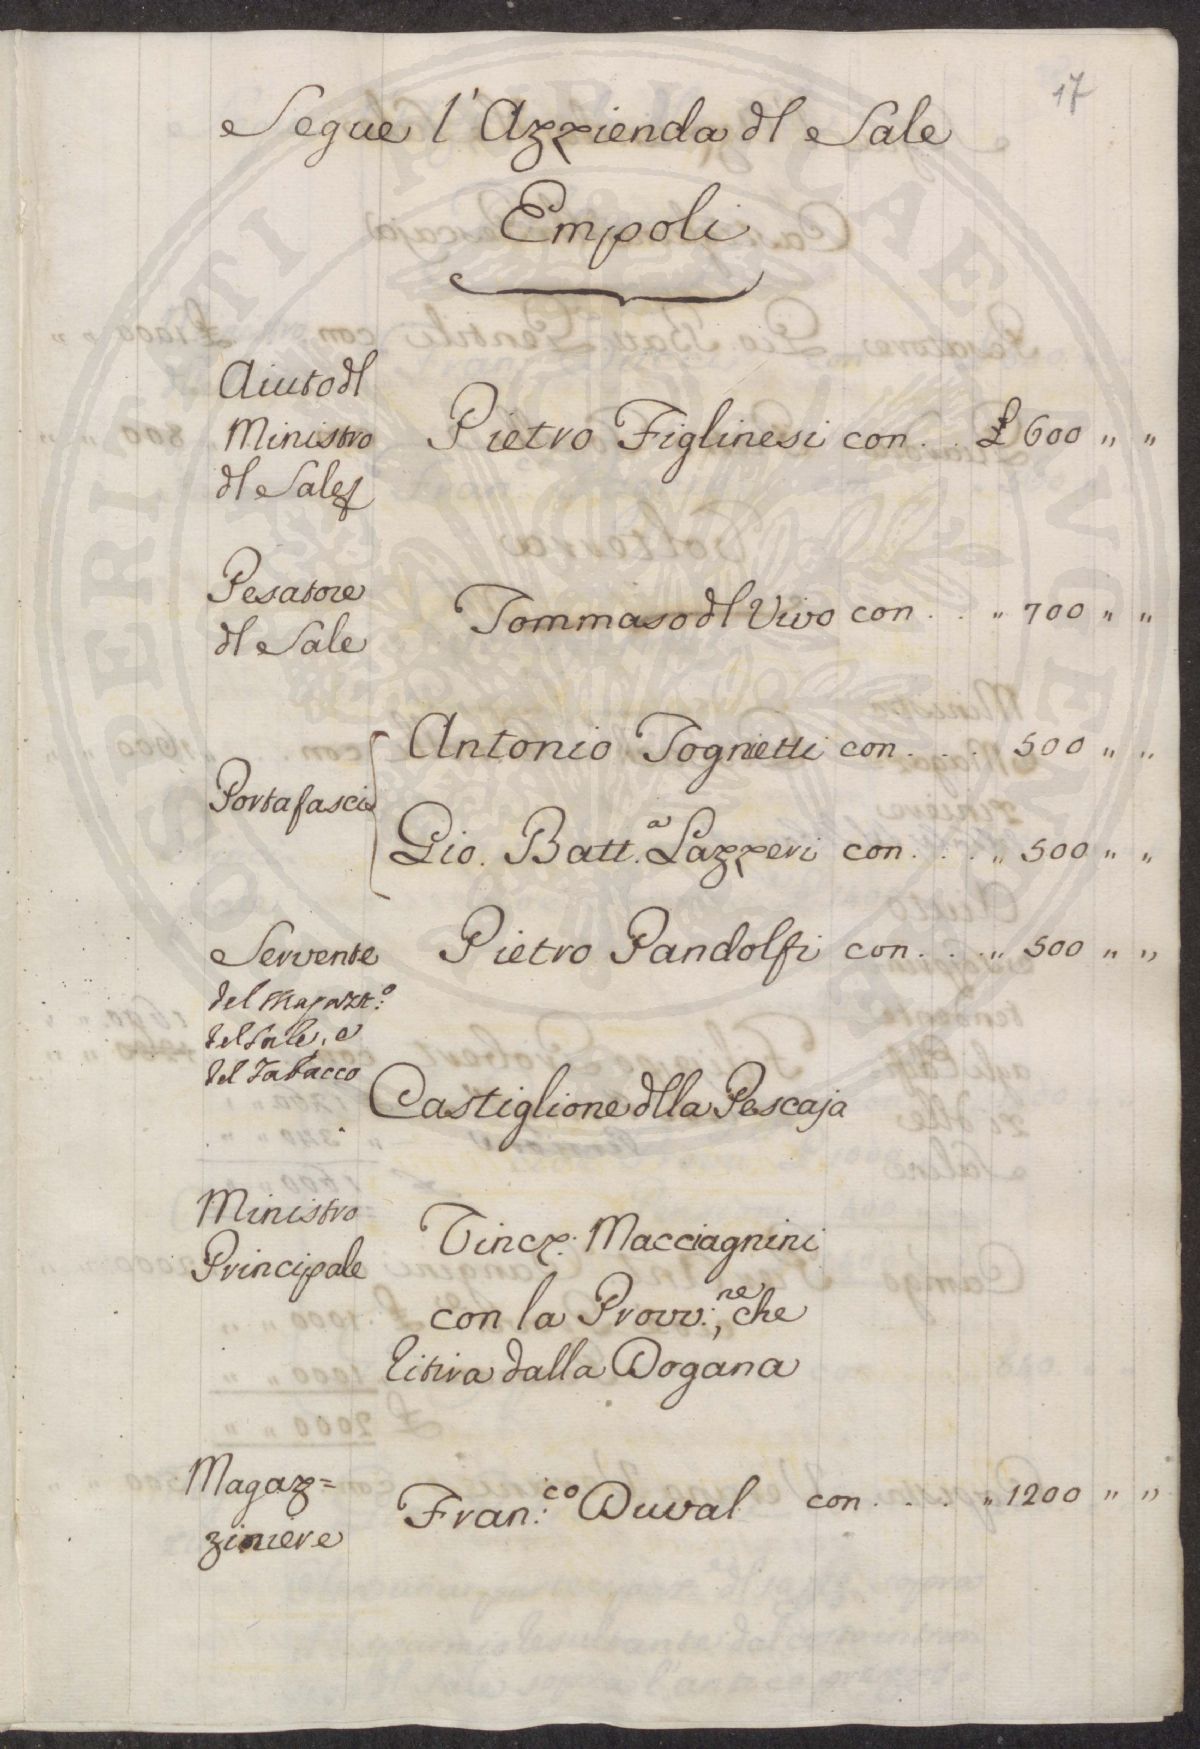 17
Segue l'Azzienda dl Sale
Empoli
Aiuto dl
Ministro
dl Sale
Pietro Figlinesi con . . £ 600 " "
Pesatore
dl Sale
Tommaso dl Vivo con . . " 700 " "
Portafasci
Antonio Tognetti con . . . 500 " "
Gio. Batt.a Lazzeri con . . . " 500 " "
Servente
del Magazz.o
del Sale, e
del Tabacco
Pietro Pandolfi con . . . " 500 " "
Castiglione dlla Pescaja
Ministro
Principale
Vincz. Macciagnini
con la Provv:ne, che
ritira dalla Dogana
Magaz=
ziniere
Fran:co Duval con . . . " 1200 " "